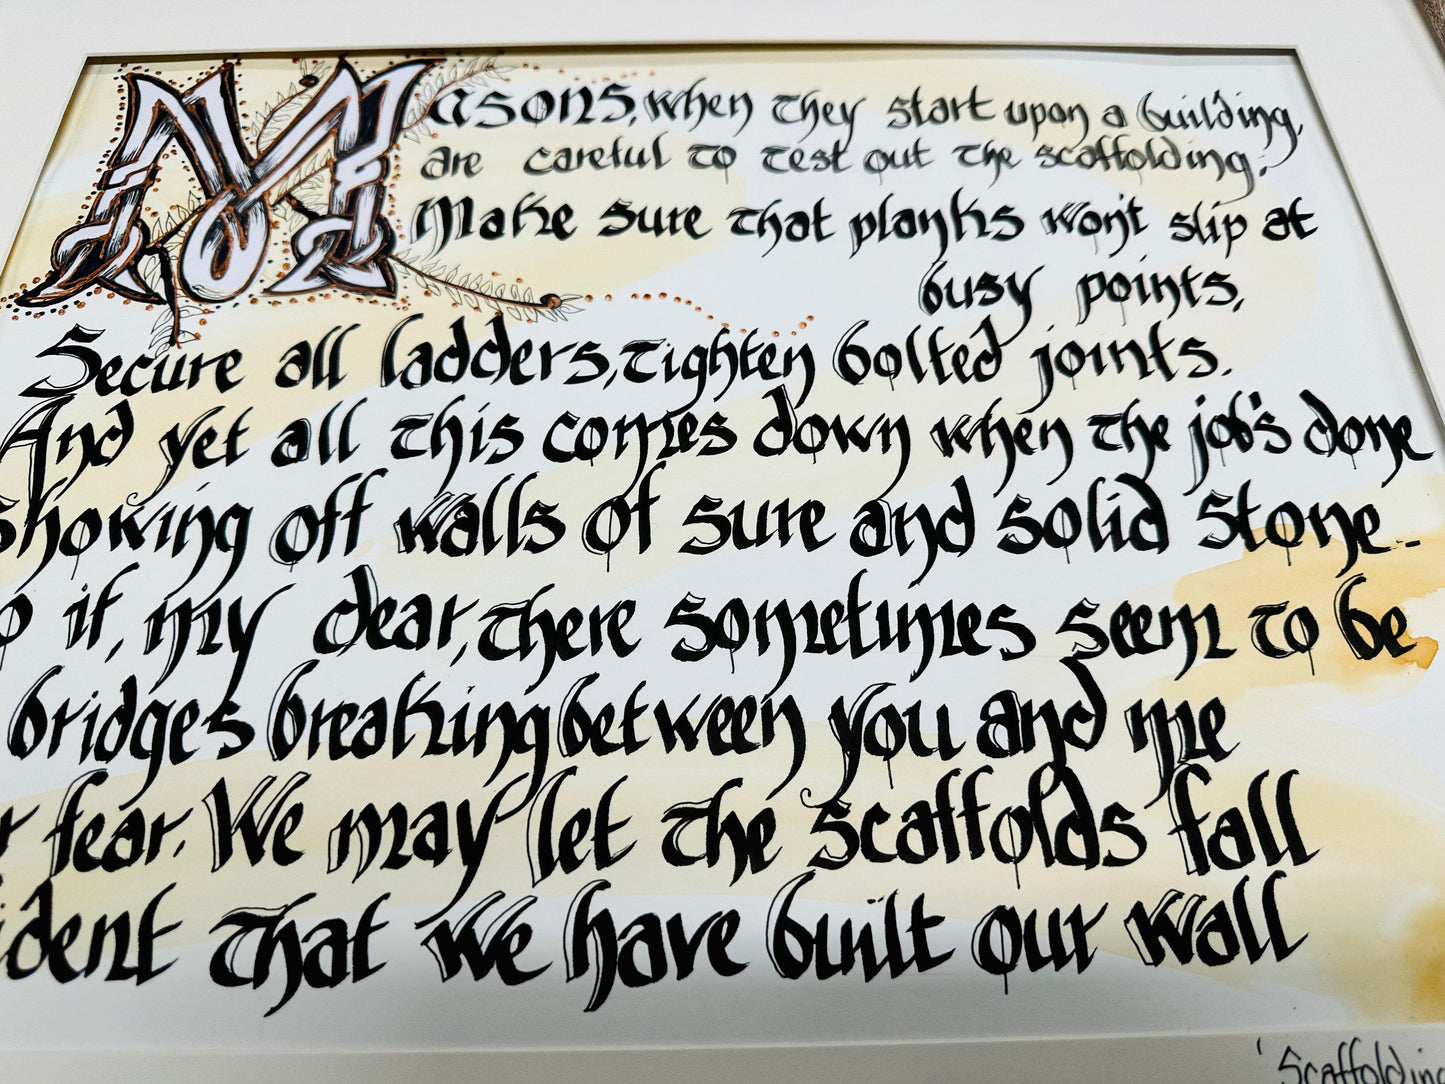 Masons, when they start upon a building,
are careful to test out the scaffolding;
Make sure that planks won't slip at
busy points,
Secure all ladders, tighten bolted joints.
And yet all this comes down when the job's done
showing off walls of sure and solid stone.
if, my dear, there sometimes seem to be
bridges breaking between you and me
fear. We may let the scaffolds fall
that we have built our wall
'Scaffolding